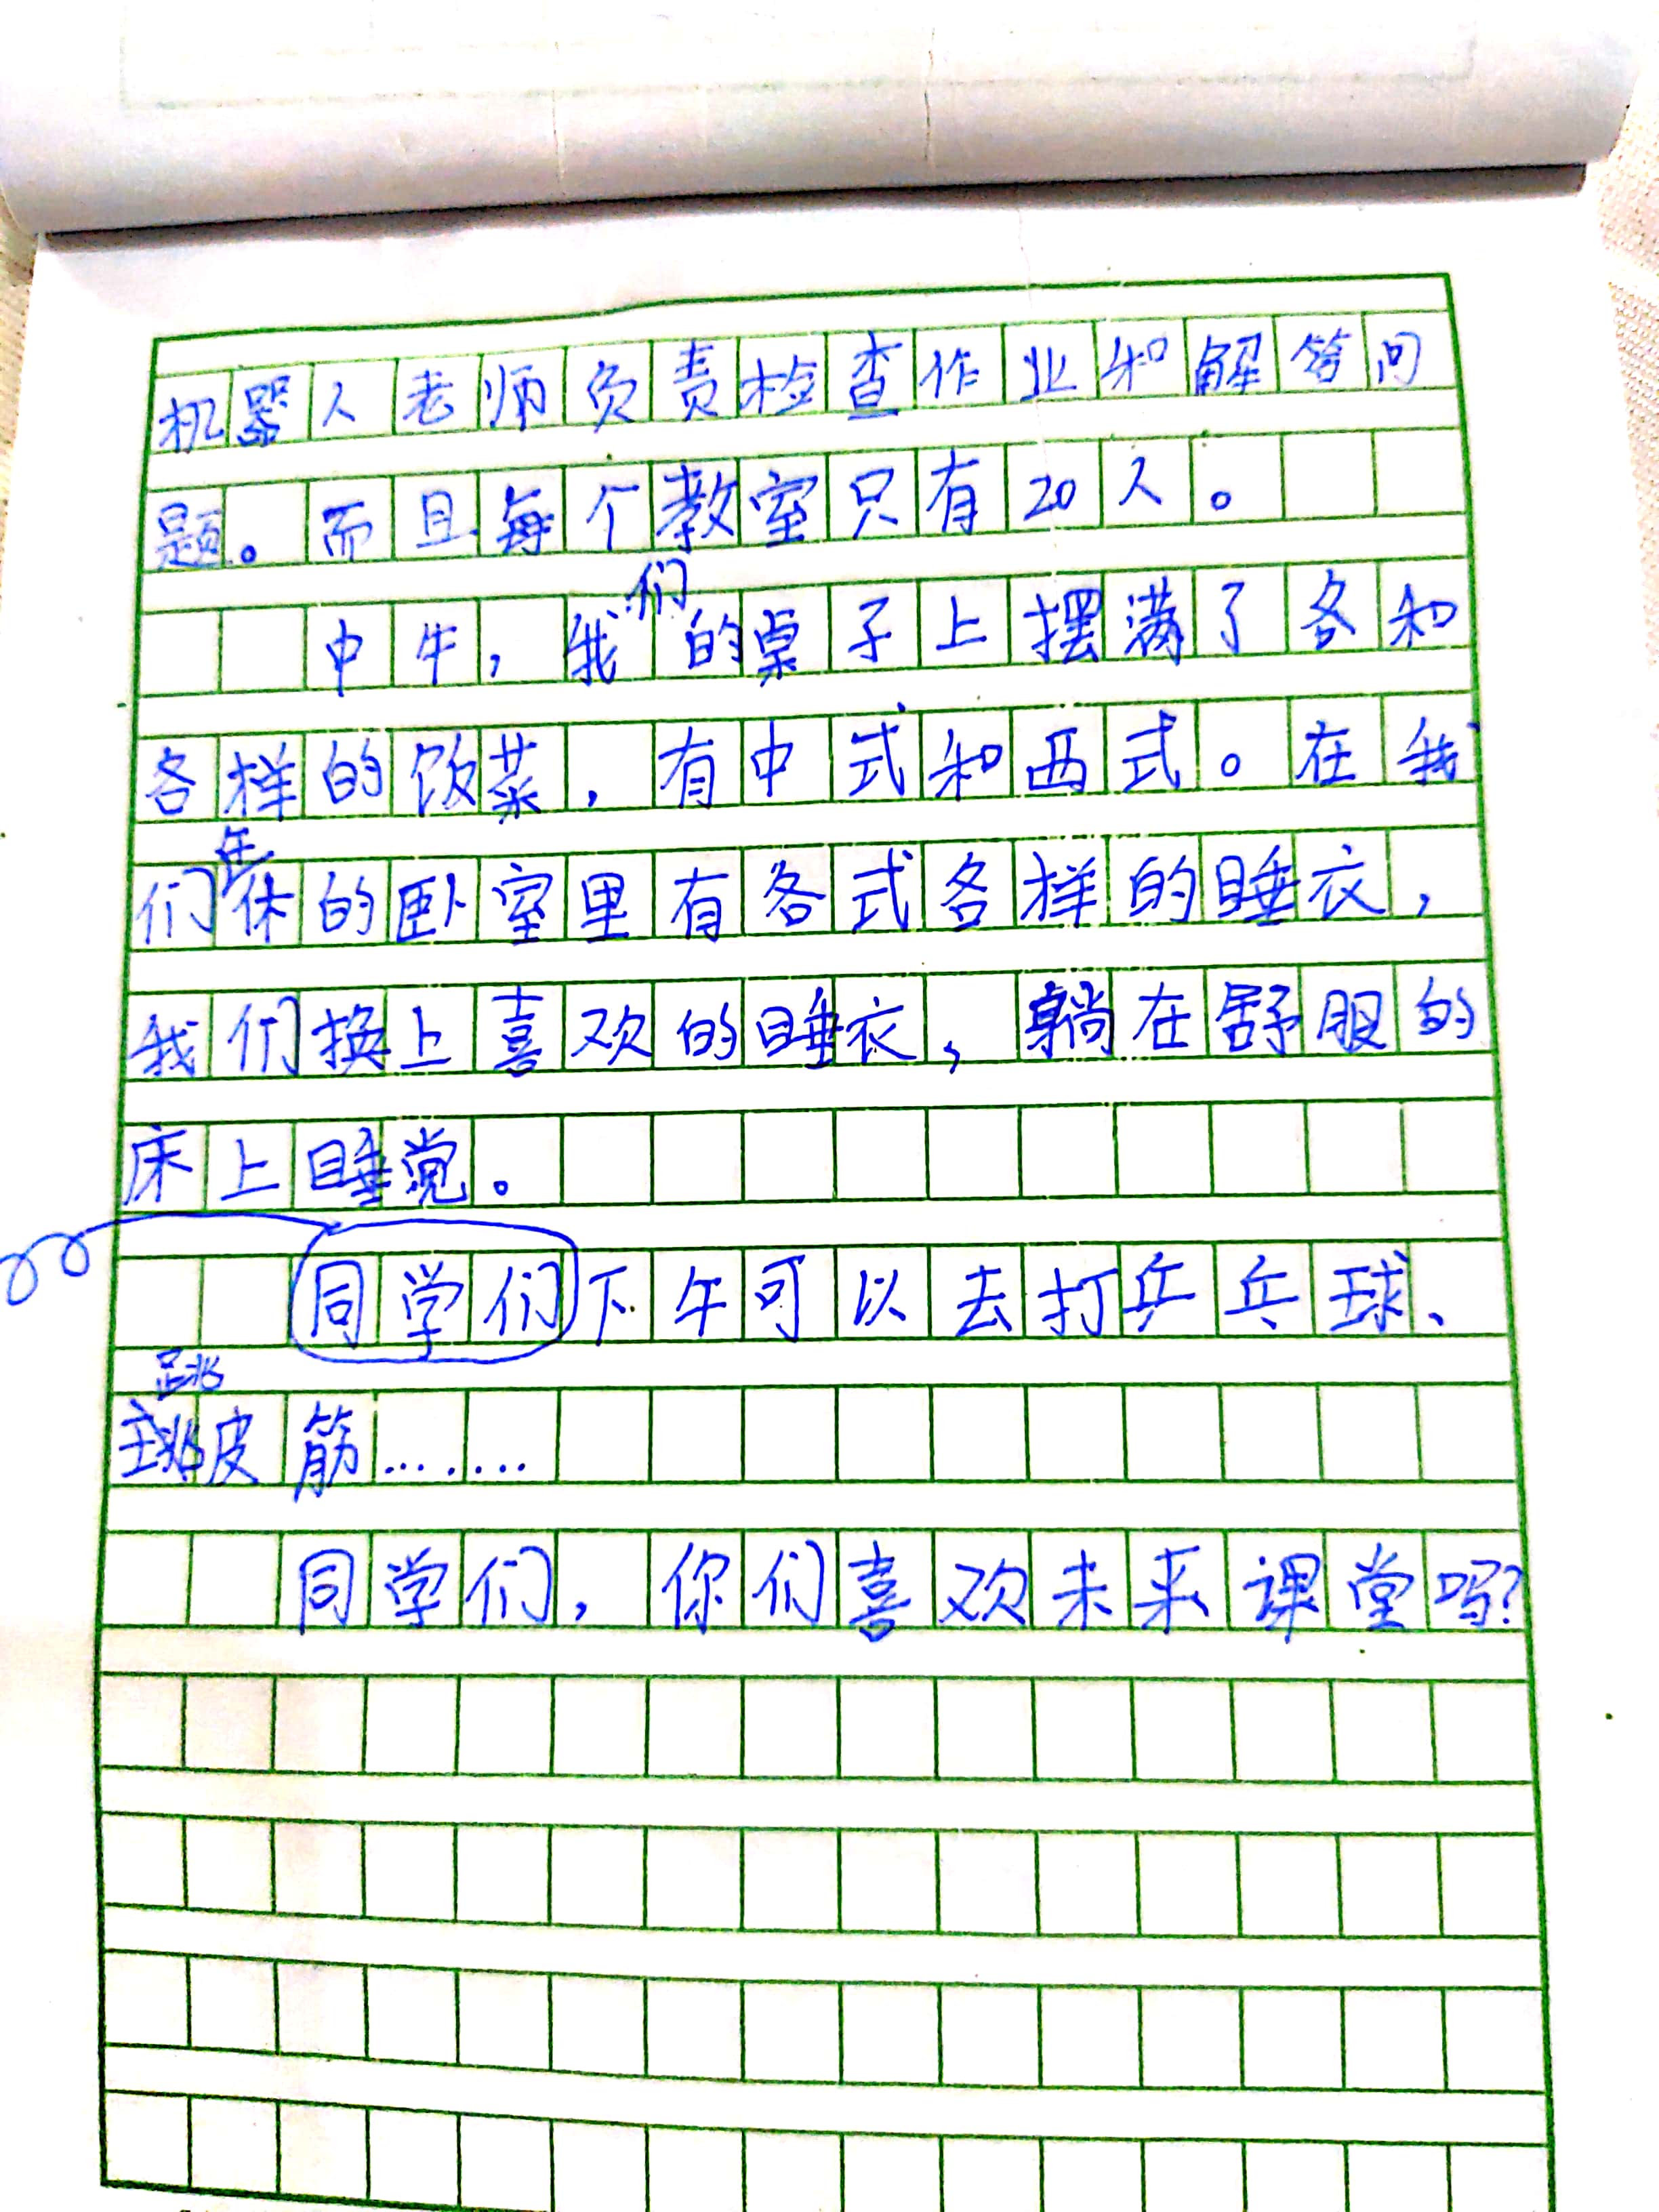 机器人老师负责检查作业和解答问
题。而且每个教室只有20人。
中牛,我们的桌子上摆满了各和
各样的饭菜,有中式和西式。在我
们午休的卧室里有各式各样的睡衣,
我们换上喜欢的睡衣,躺在舒服的
床上睡觉。
同学们下午可以去打乒乓球、
跳皮筋……
同学们,你们喜欢未来课堂吗?